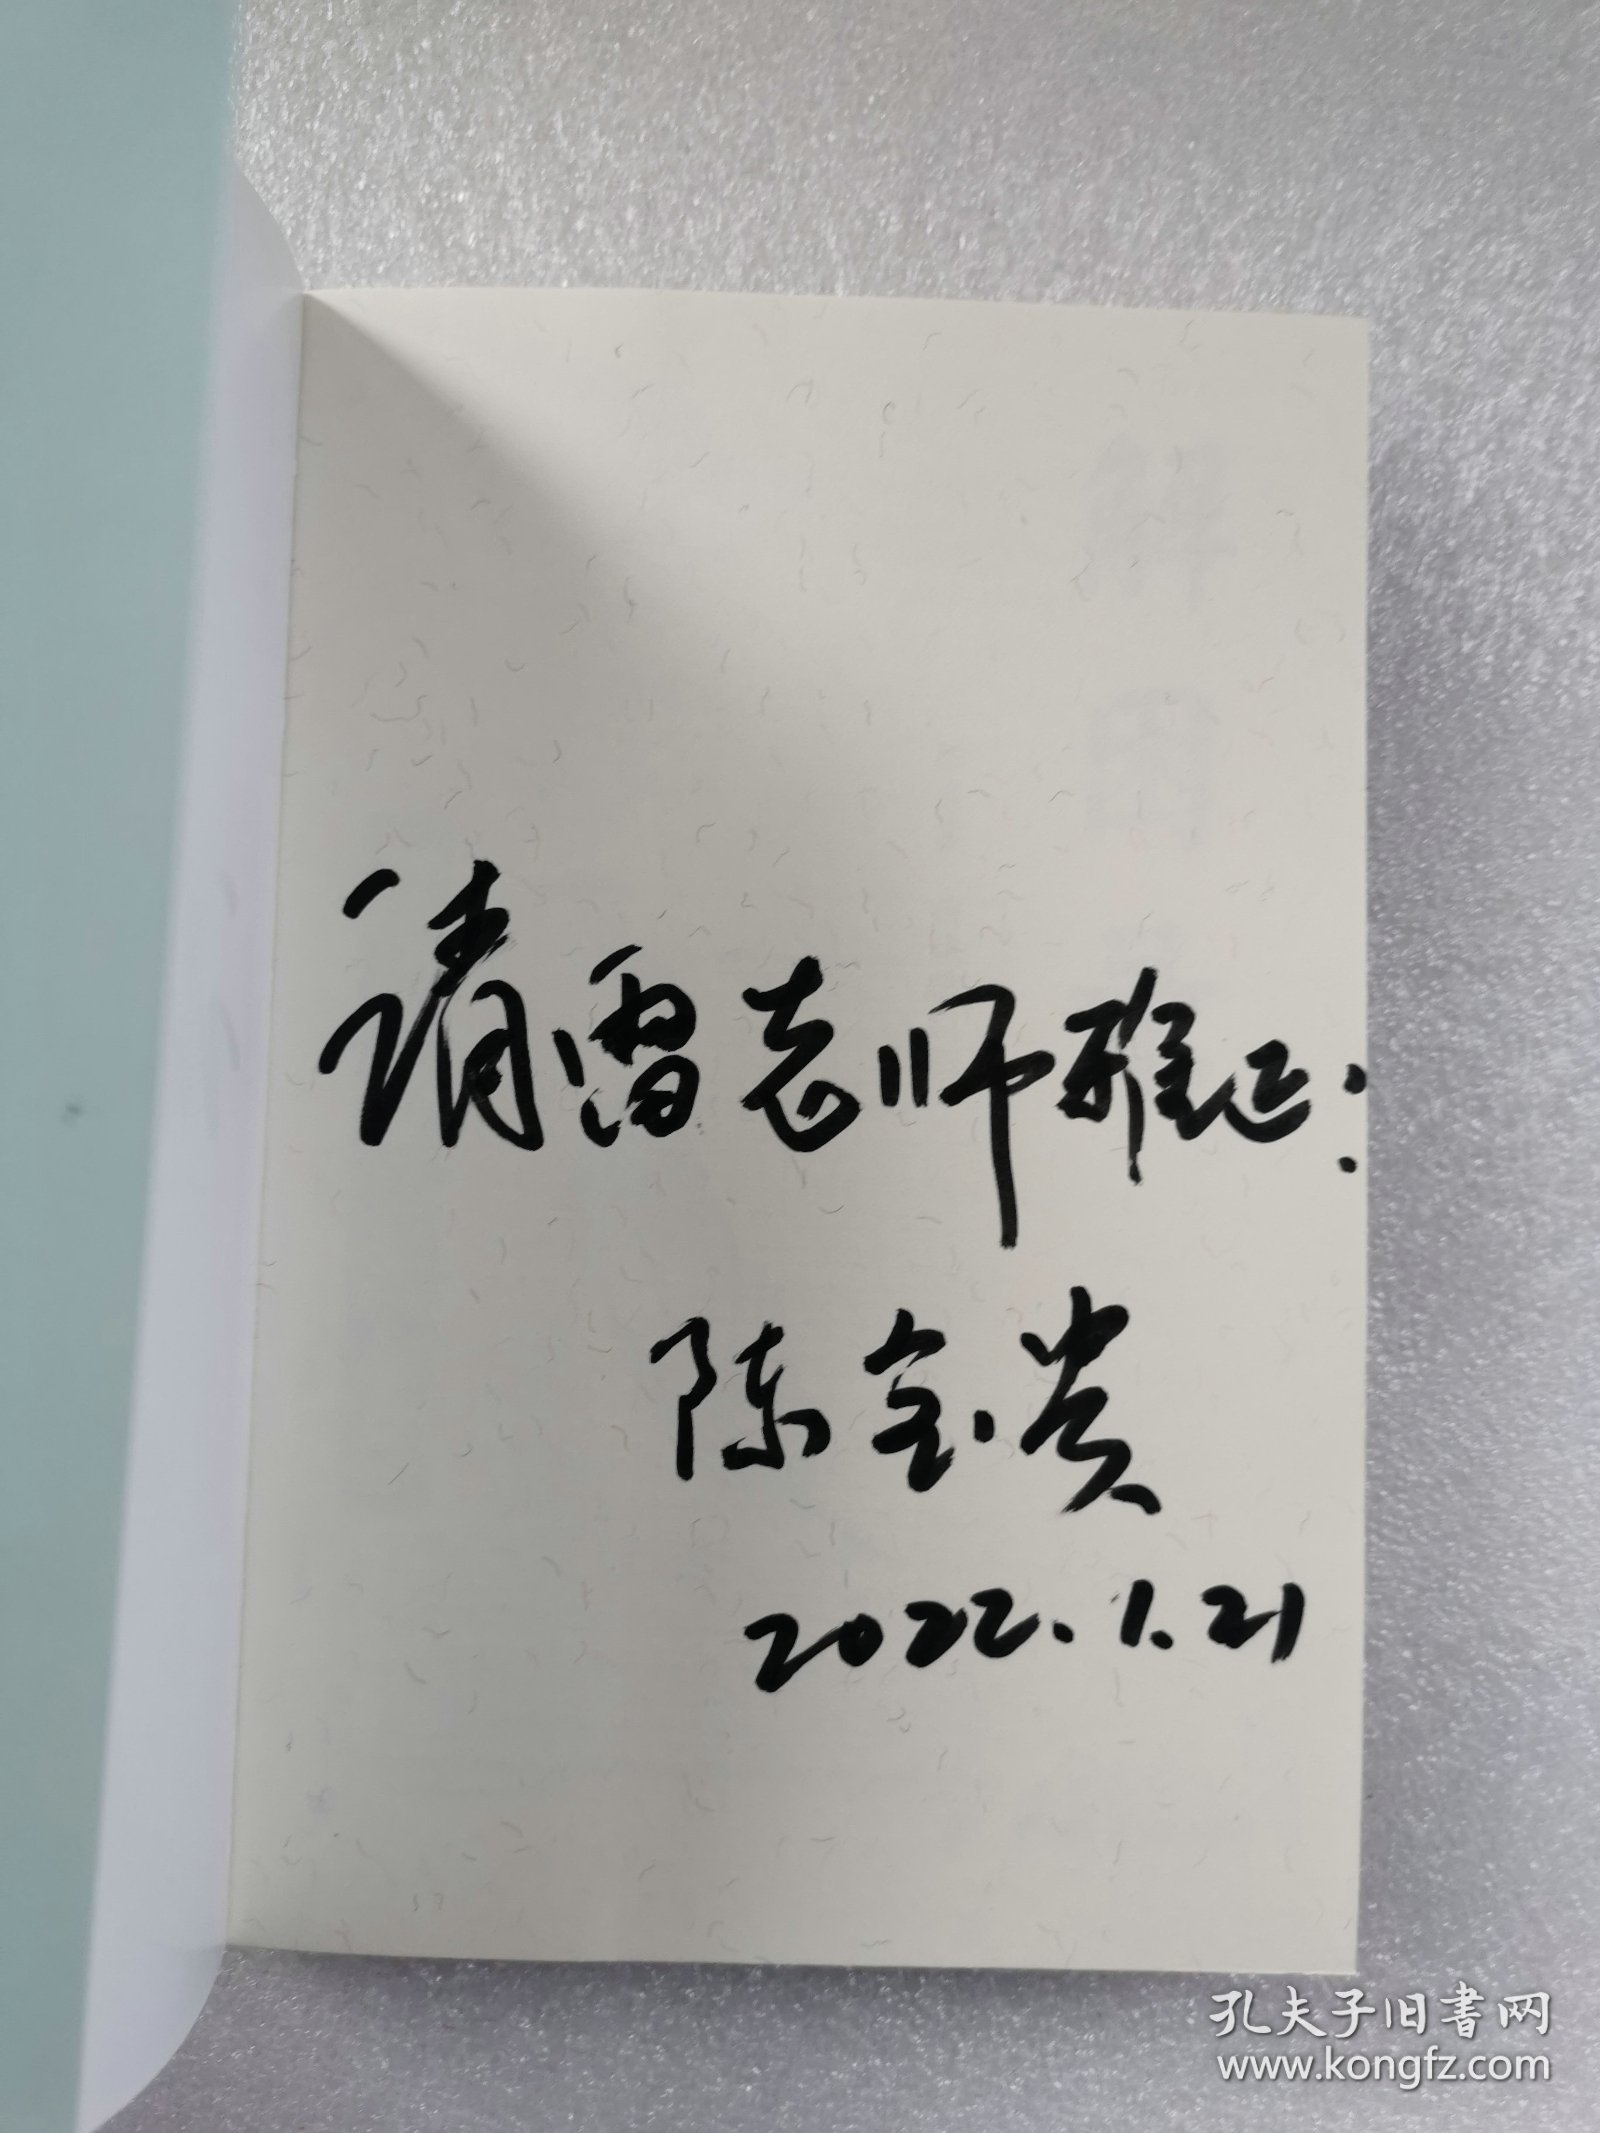 请雷老师雅正：
陈宝贵
2022.1.21
孔夫子旧书网
www.kongfz.com